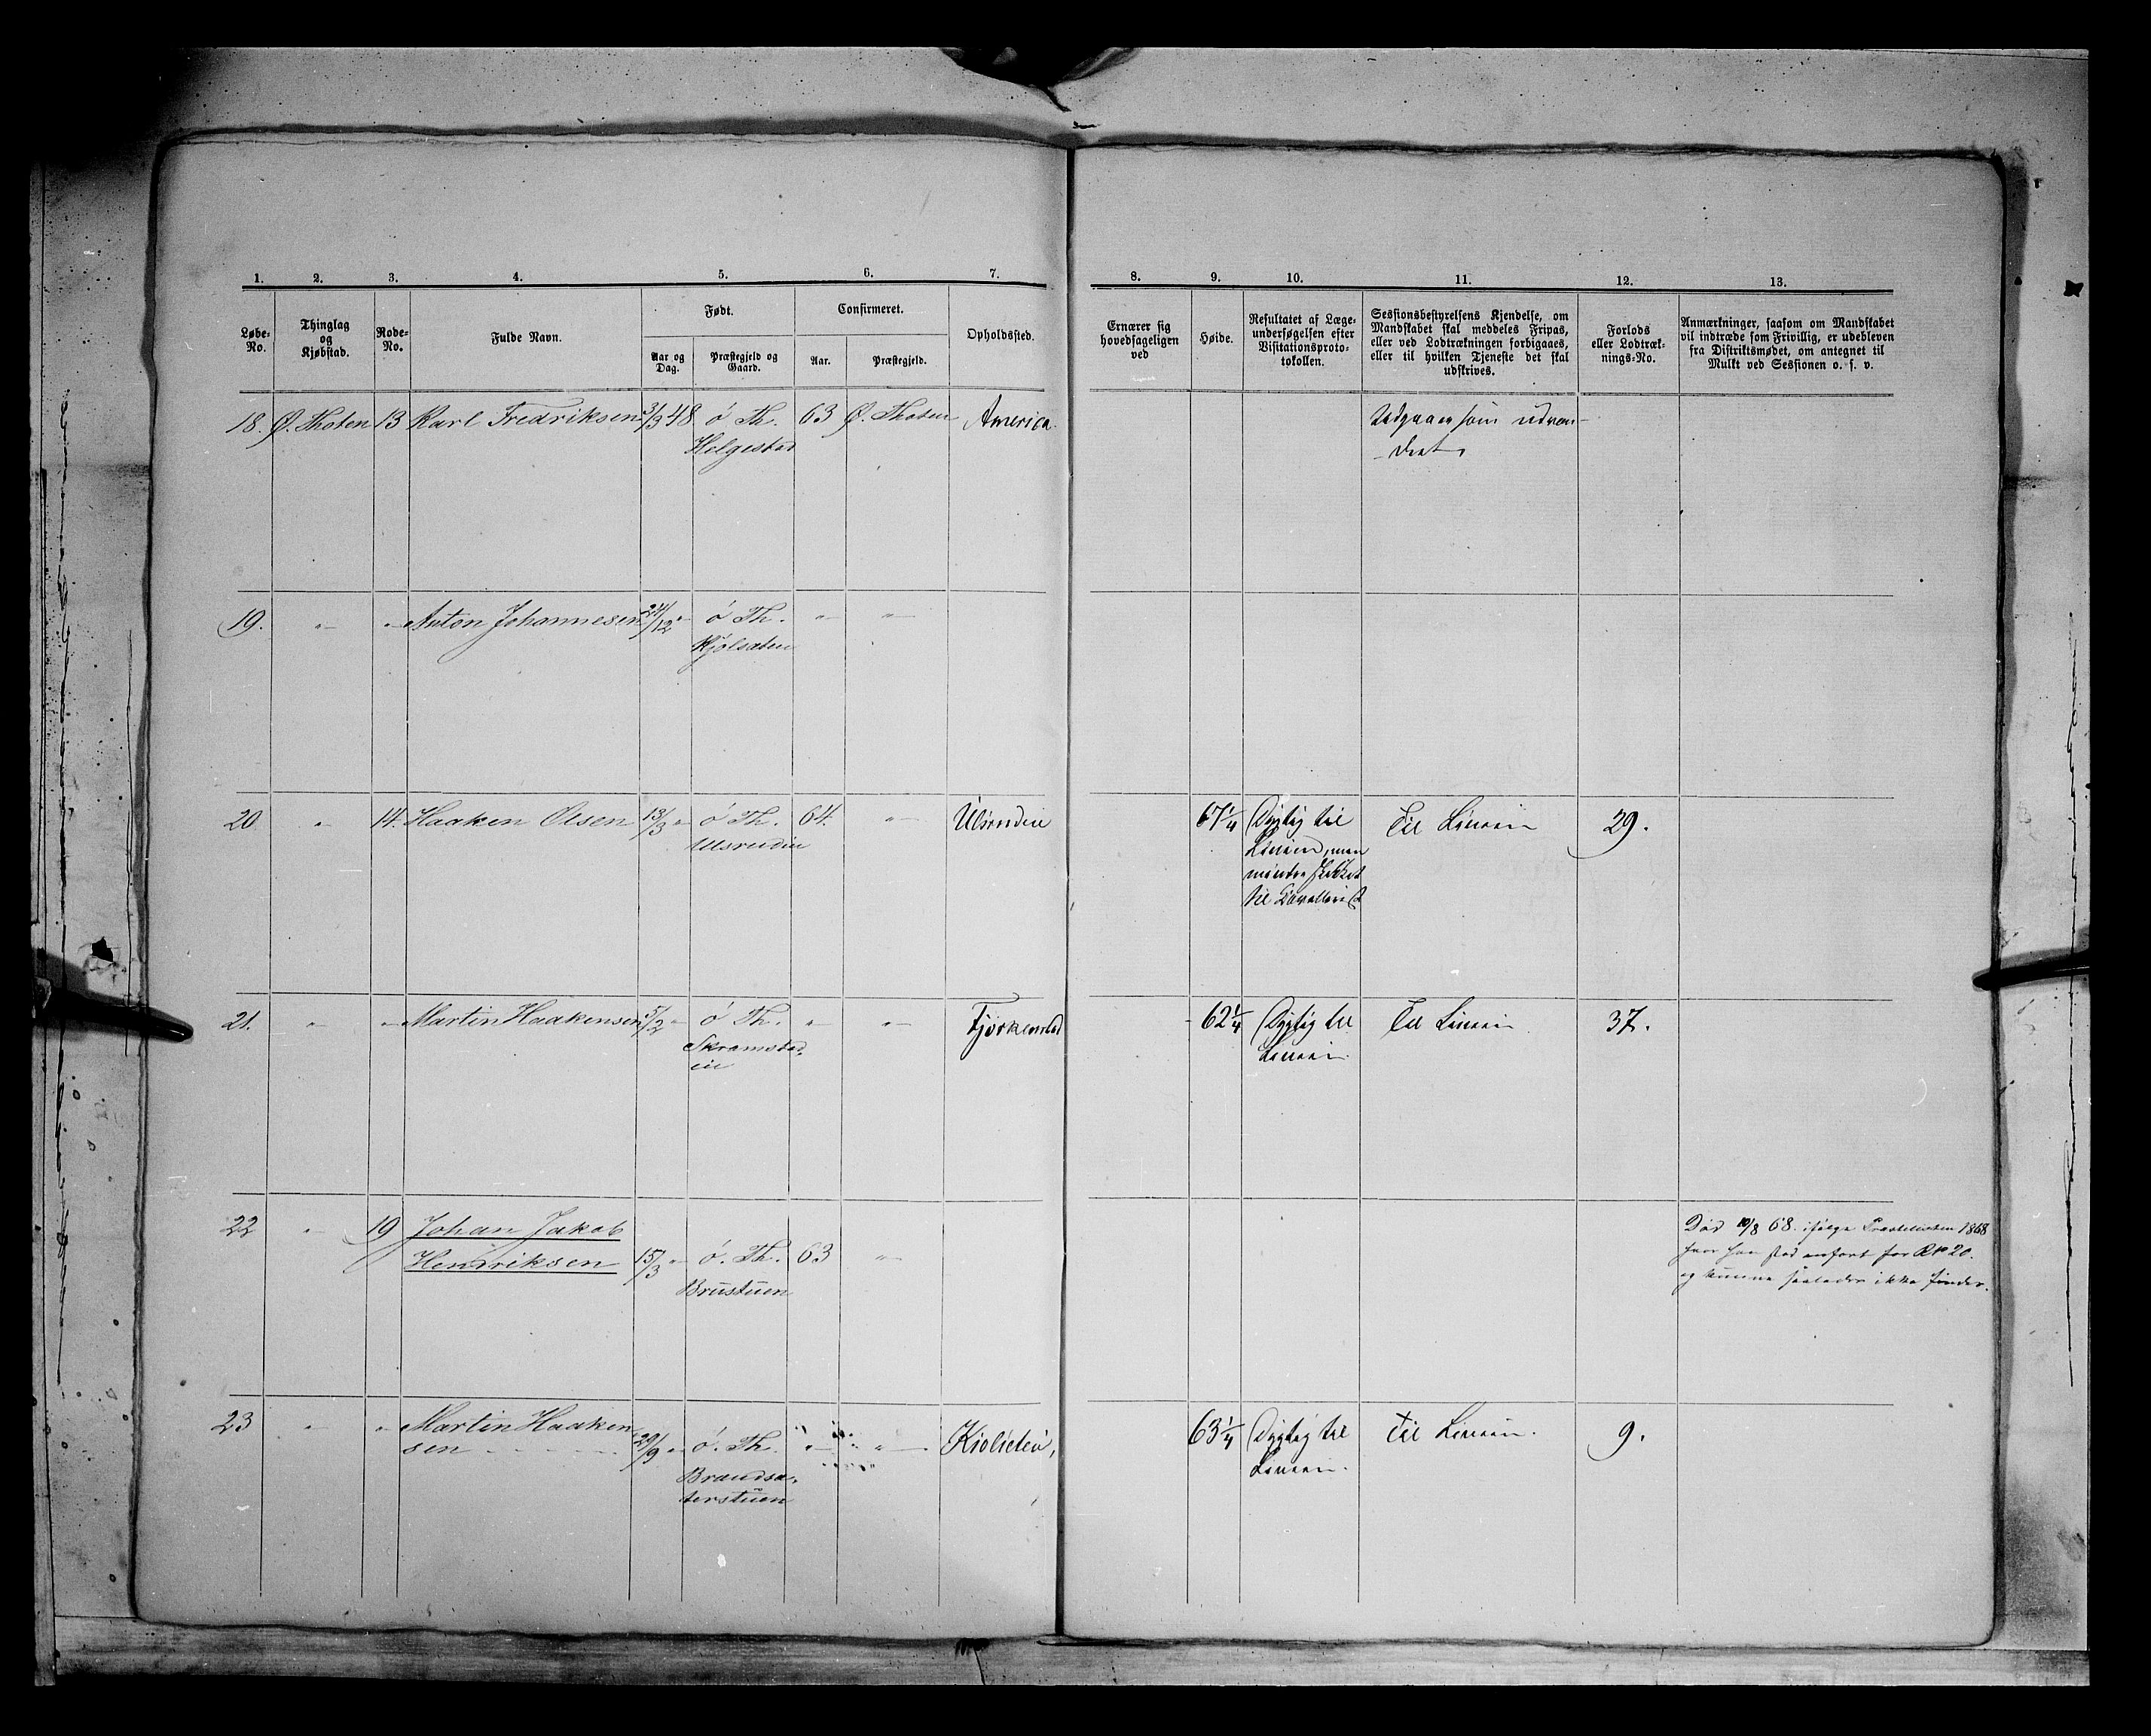 1. 2. 3. 4. 5. 6. 7. 8. 9. 10. 11. 12. 13.
Løbe-No.
Thinglag og Kjøbstad.
Rode-No.
Fulde Navn.
Født.
Aar og Dag.
Præstegjeld og Gaard.
Confirmeret.
Aar.
Præstegjeld.
Opholdssted.
Ernærer sig hovedsageligen ved
Høide.
Resultatet af Læge-
undersøgelsen efter
Visitationsproto-
tokollen.
Sessionsbestyrelsens Kjendelse, om
Mandskabet skal meddeles Fripas,
eller ved Lodtrækningen forbigaaes,
eller til hvilken Tjeneste det skal
udskrives.
Forlods
eller Lodtræk-
nings-No.
Anmærkninger, saasom om Mandskabet
vil indtræde som Frivillig, er udebleven
fra Distriktsmødet, om antegnet til
Mulkt ved Sessionen o. s. v.
18. Ø. Thoten 13 Karl Fredriksen 3/3 48 ø Th. 63 Ø. Thoten America
Helgestad
Udgaaer som udvan-
dret
19. " " Anton Johannesen 24/12 " ø Th. " "
Kjølsæten
20 " 14. Haaken Olsen 13/3 " ø Th. 64. " Ulsrudei 67 1/4 Dygtig til Til Linien 29.
Ulsrudei
Linien, men
mindre skikket
til Cavallerist
21. " " Martin Haakensen 5/2 " ø Th. " " Fjørkenstad 62 1/4 Dygtig til Til Linien 37.
Skramstad-
ei
Linien.
22 " 19 Johan Jakob
Henriksen 15/3 " ø. Th. 63 "
Brustuen
Død 10/8 68. ifølge Præstelisten 1868
hvor han stod anført for R No 20.
og kunne saaledes ikke findes.
23 " " Martin Haaken
sen 29/9 " ø. Th. " " Kiolseteie, 63 1/4 Dygtig til Til Linien. 9.
Brandsæ-
terstuen
Linien.